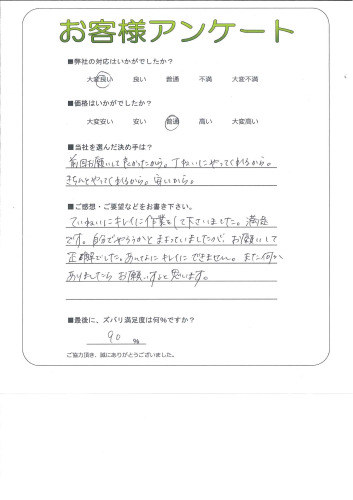 お客様アンケート
■弊社の対応はいかがでしたか？
大変良い 良い 普通 不満 大変不満
■価格はいかがでしたか？
大変安い 安い 普通 高い 大変高い
■当社を選んだ決め手は？
前回お願いして良かったから。丁ねいにやってくれるから。
きちんとやってくれるから。安いから。
■ご感想・ご要望などをお書き下さい。
ていねいにキレイに作業をして下さいました。満足
です。自分でやろうかとまよっていましたが、お願いして
正解でした。あんなにキレイにできません。また何か
ありましたらお願いすると思います。
■最後に、ズバリ満足度は何％ですか？
90 %
ご協力頂き、誠にありがとうございました。